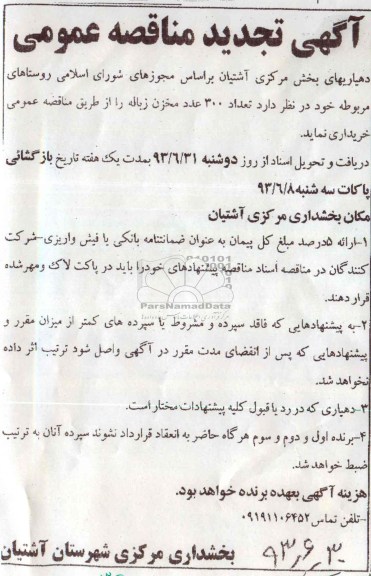 آگهی تجدید مناقصه عمومی
دهیاریهای بخش مرکزی آشتیان براساس مجوزهای شورای اسلامی روستاهای
مربوطه خود در نظر دارد تعداد ۳۰۰ عدد مخزن زباله را از طریق مناقصه عمومی
خریداری نماید.
دریافت و تحویل اسناد از روز دوشنبه ۹۳/۶/۳۱ بمدت یک هفته تاریخ بازگشائی
پاکات سه شنبه ۹۳/۶/۸
مکان بخشداری مرکزی آشتیان
۱-ارائه ۵درصد مبلغ کل پیمان به عنوان ضمانتنامه بانکی یا فیش واریزی-شرکت
کنندگان در مناقصه اسناد مناقصه پیشنهادهای خودرا باید در پاکت لاک ومهرشده
قرار دهند.
ParsNamadData
۲-به پیشنهادهایی که فاقد سپرده و مشروط یا سپرده های کمتر از میزان مقرر و
پیشنهادهایی که پس از انقضای مدت مقرر در آگهی واصل شود ترتیب اثر داده
نخواهد شد.
۳-دهیاری که در رد یا قبول کلیه پیشنهادات مختار است.
۴-برنده اول و دوم و سوم هرگاه حاضر به انعقاد قرارداد نشوند سپرده آنان به ترتیب
ضبط خواهد شد.
هزینه آگهی بعهده برنده خواهد بود.
-تلفن تماس ۰۹۱۹۱۱۰۶۴۵۲
بخشداری مرکزی شهرستان آشتیان
۹۳,۶,۳۰